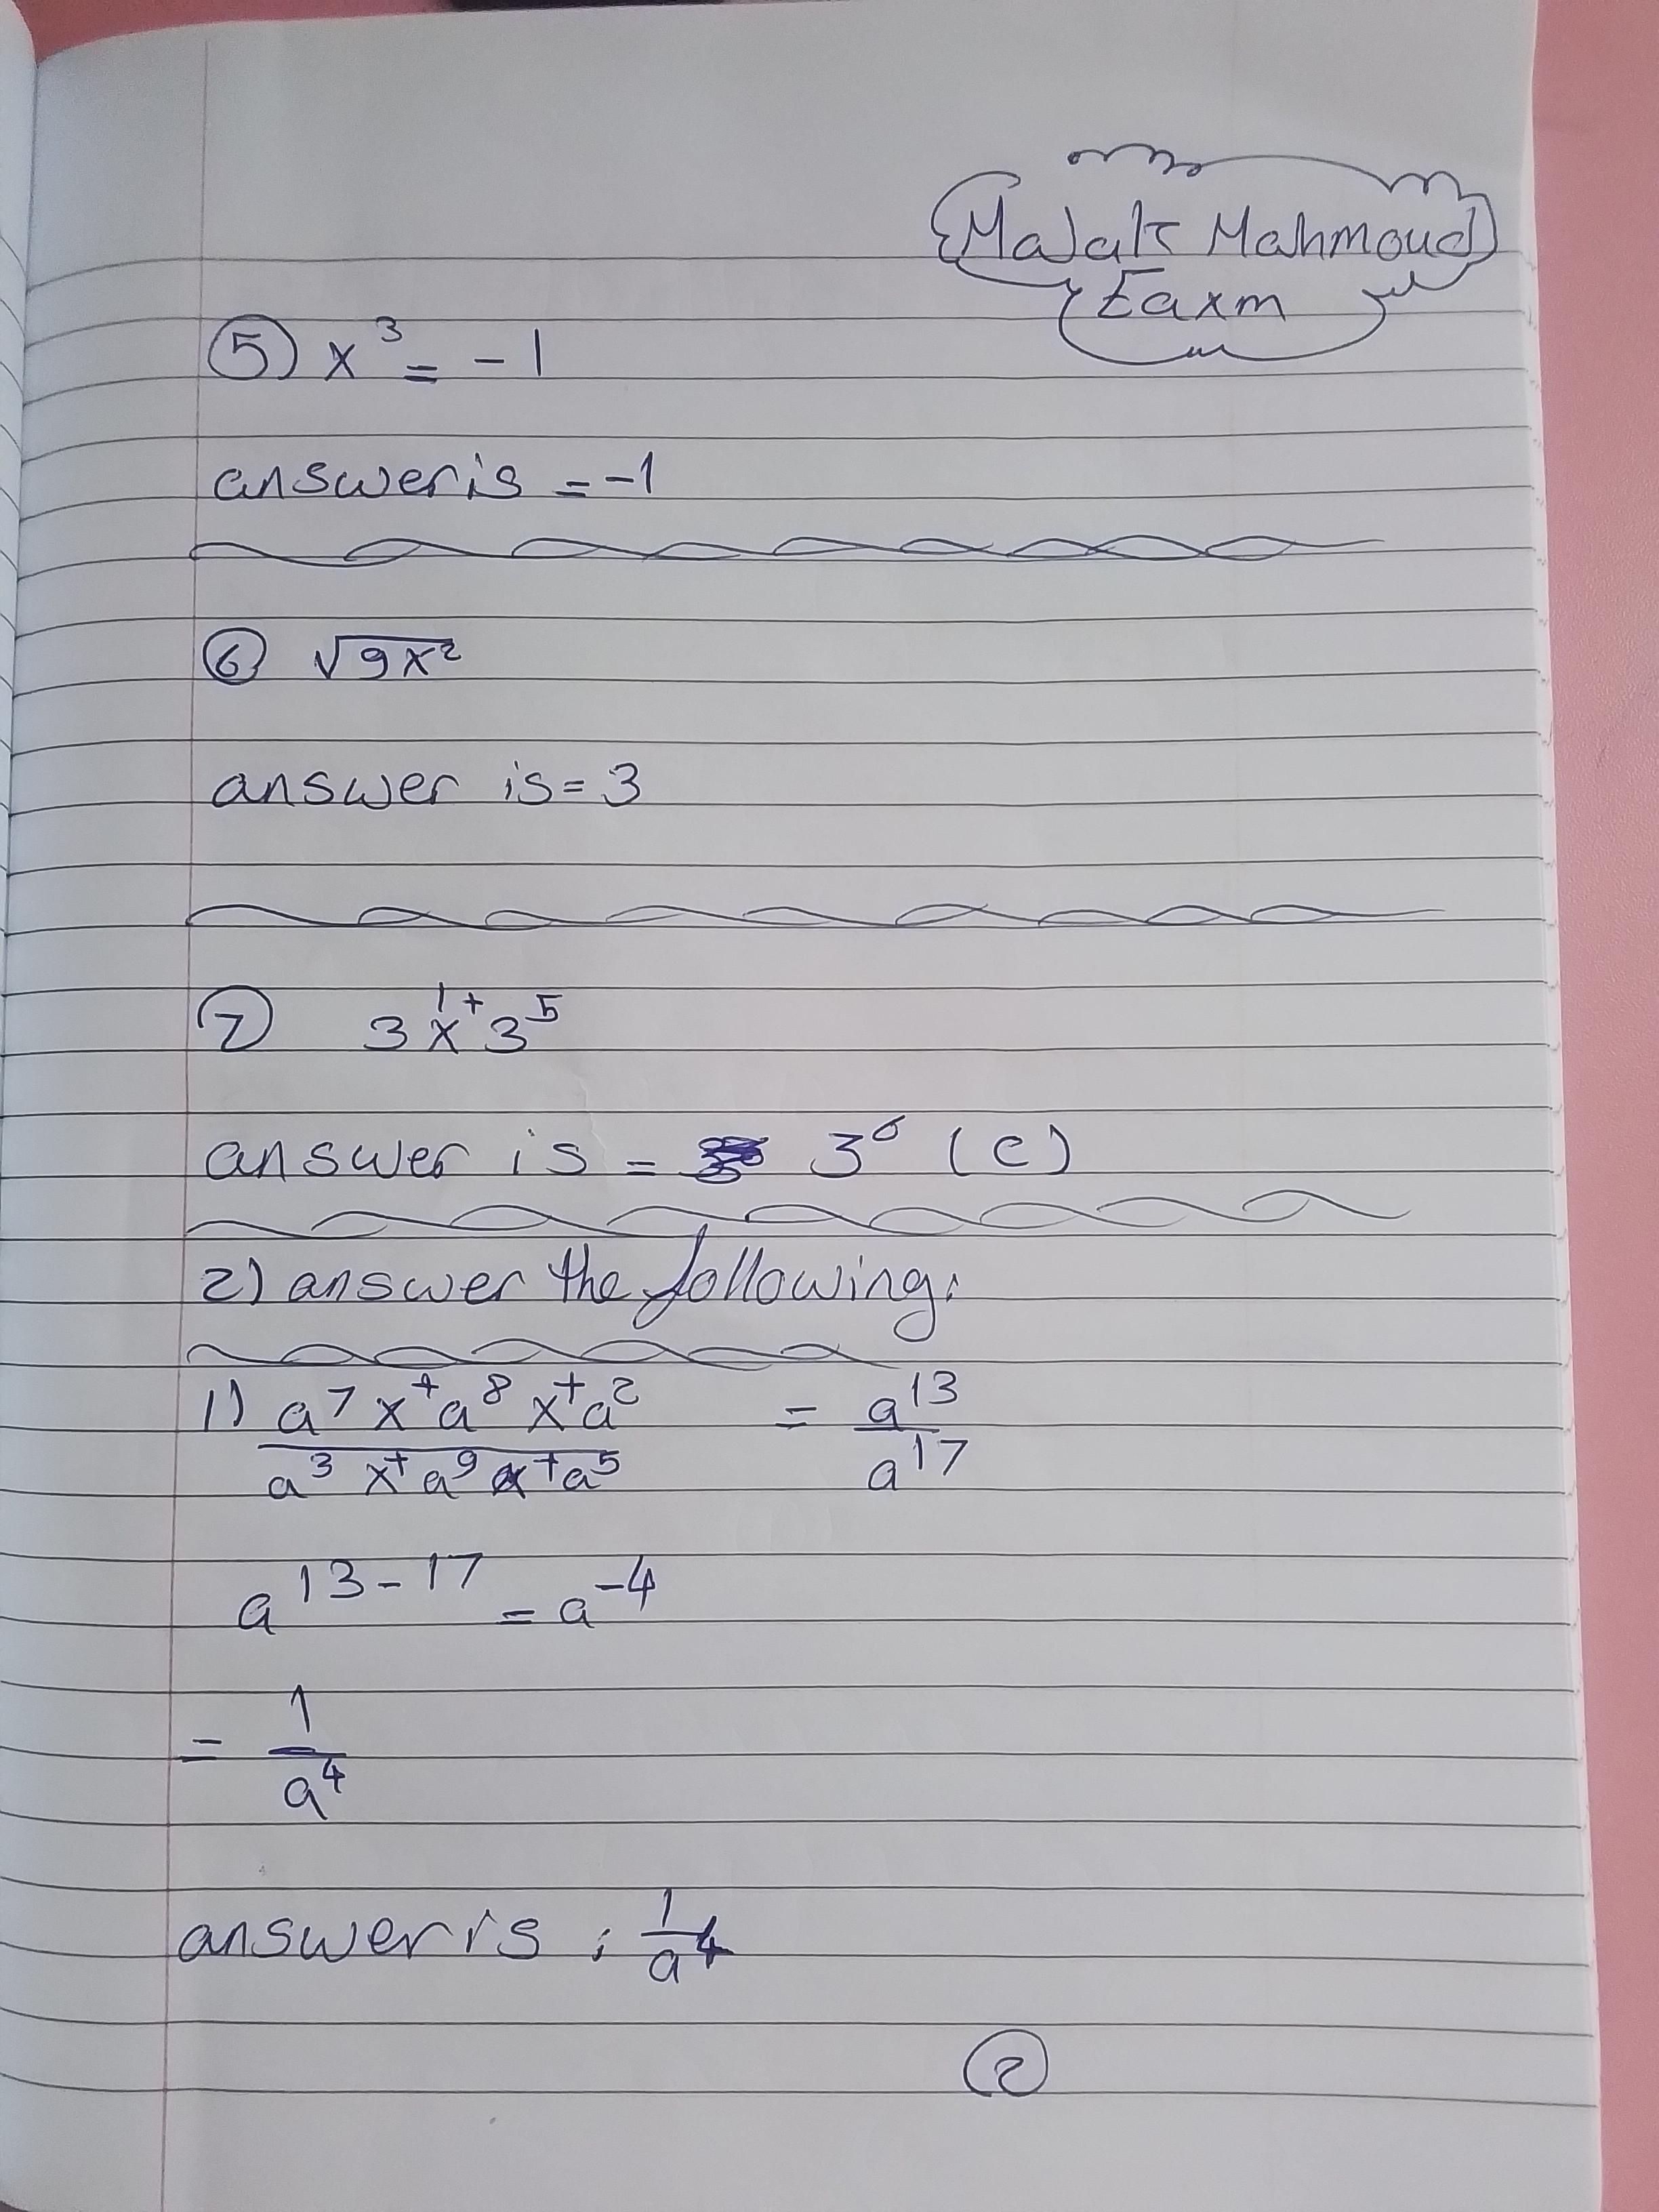 Malak Mahmoud
Eaxm
5) x³ = -1
answer is = -1
6) √9x²
answer is = 3
7) 3 x¹⁺ 3⁵
answer is = 3⁶ (c)
2) answer the following:
1) a⁷ x⁺ a⁸ x⁺ a² / a³ x⁺ a⁹ x⁺ a⁵ = a¹³ / a¹⁷
a¹³⁻¹⁷ = a⁻⁴
= 1 / a⁴
answer is : 1 / a⁴
2